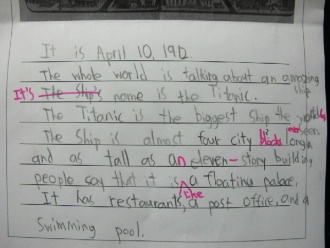 It is April 10, 1912
The whole world is talking about an amazing ship
It's The Ship's name is the Titanic.
The Titanic is the biggest ship the world
The Ship is almost four city blocks long
and as tall as an eleven-story building
people say that it is like a floating palace.
It has restaurants, a post office, and a
Swimming pool.